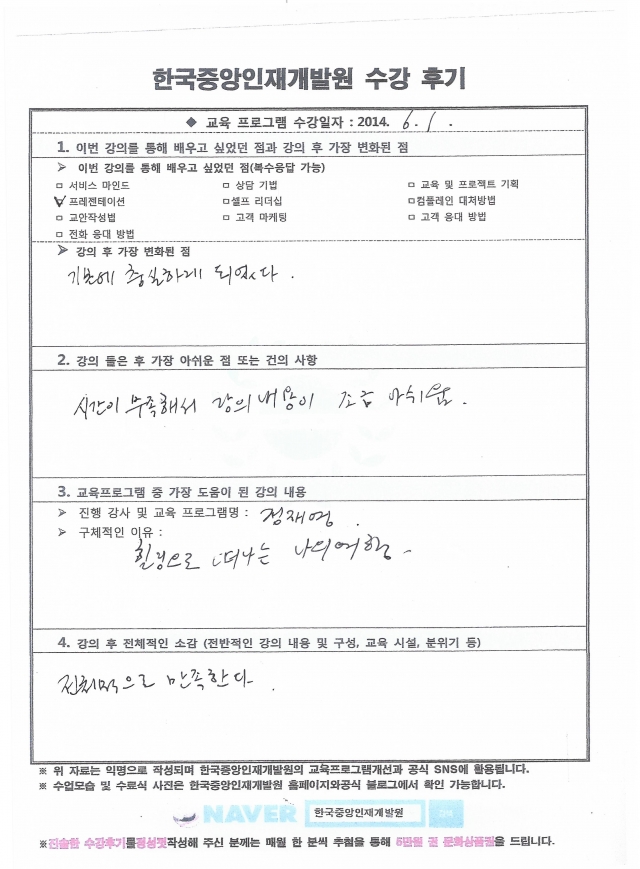 한국중앙인재개발원 수강 후기
◆ 교육 프로그램 수강일자 : 2014. 6. 1.
1. 이번 강의를 통해 배우고 싶었던 점과 강의 후 가장 변화된 점
➢ 이번 강의를 통해 배우고 싶었던 점(복수응답 가능)
□ 서비스 마인드 □ 상담 기법 □ 교육 및 프로젝트 기획
☑ 프레젠테이션 □셀프 리더십 □컴플레인 대처방법
□ 교안작성법 □ 고객 마케팅 □ 고객 응대 방법
□ 전화 응대 방법
➢ 강의 후 가장 변화된 점
기본에 충실하게 되었다.
2. 강의 들은 후 가장 아쉬운 점 또는 건의 사항
시간이 부족해서 강의 내용이 조금 아쉬움.
3. 교육프로그램 중 가장 도움이 된 강의 내용
➢ 진행 강사 및 교육 프로그램명 : 정재영.
➢ 구체적인 이유 :
힐링으로 떠나는 나의여행.
4. 강의 후 전체적인 소감 (전반적인 강의 내용 및 구성, 교육 시설, 분위기 등)
전체적으로 만족한다.
※ 위 자료는 익명으로 작성되며 한국중앙인재개발원의 교육프로그램개선과 공식 SNS에 활용됩니다.
※ 수업모습 및 수료식 사진은 한국중앙인재개발원 홈페이지와공식 블로그에서 확인 가능합니다.
NAVER 한국중앙인재개발원
※진솔한 수강후기를정성껏작성해 주신 분께는 매월 한 분씩 추첨을 통해 5만원 권 문화상품권을 드립니다.